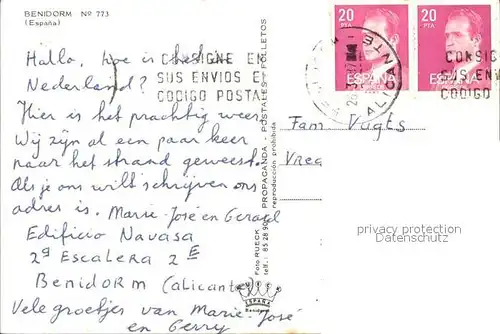 BENIDORM Nº 773
(España)
Hallo, hoe is het in
Nederland?
Hier is het prachtig weer
Wij zijn al een paar keer
naar het strand geweest.
Als je ons wilt schrijven ons
adres is. Marie-José en Gerard
Edificio Navasa
2ª Escalera 2 E
Benidorm (Alicante)
Vele groetjes van Marie-José
en Gerry
CONSIGNE EN
SUS ENVIOS EL
CODIGO POSTAL
Foto RUECK
telf.: 85.28.90
PROPAGANDA - POSTALES - FOLLETOS
reproducción prohibida
ESPAÑA
Benidorm
20
PTA
ESPAÑA
20
PTA
ESPAÑA
ALICANTE
CONSIG
SUS ENV
CODIGO
Fam Vogts
Vrea
privacy protection
Datenschutz